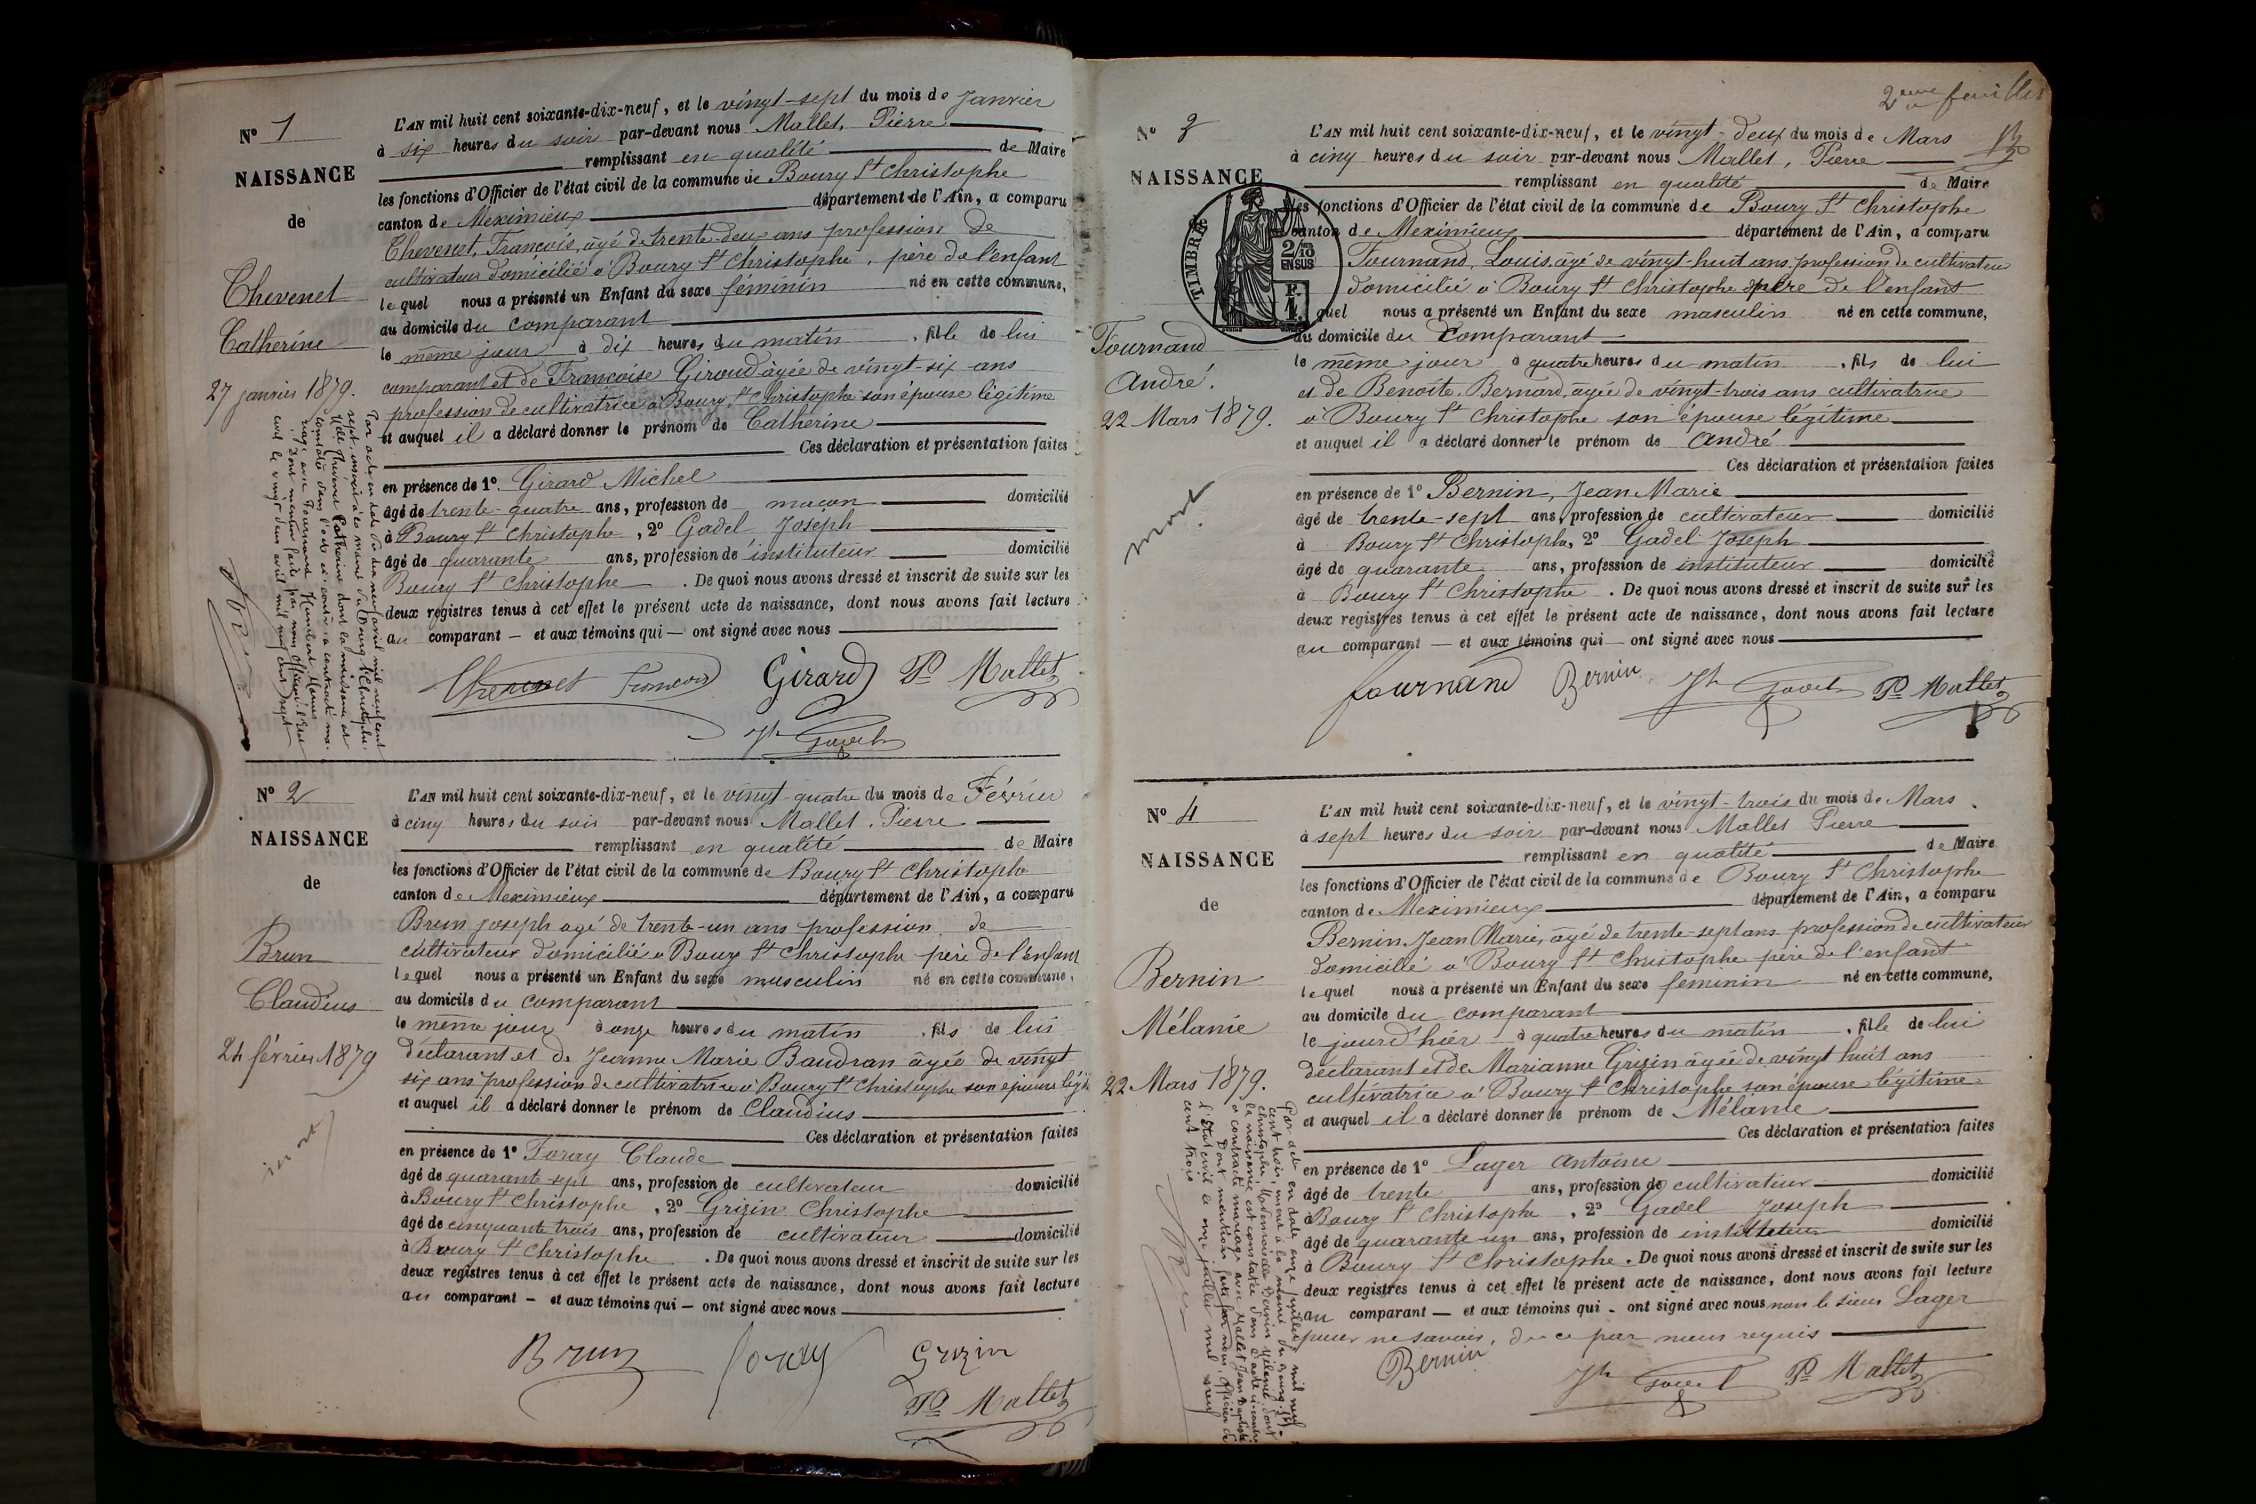 N° 1
NAISSANCE
de
Thevenet
Catherine
27 janvier 1879.
L'AN mil huit cent soixante-dix-neuf, et le vingt-sept du mois de Janvier
à six heures du soir par-devant nous Mallet, Pierre
remplissant en qualité de Maire
les fonctions d'Officier de l'état civil de la commune de Bourg St Christophe
canton de Meximieux département de l'Ain, a comparu
Thevenet, François, âgé de trente-deux ans profession de
cultivateur domicilié à Bourg St Christophe, père de l'enfant
lequel nous a présenté un Enfant du sexe féminin né en cette commune,
au domicile du comparant
le même jour à dix heures du matin, fille de lui
comparant et de Françoise Giroud âgée de vingt-six ans
profession de cultivatrice à Bourg St Christophe son épouse légitime
et auquel il a déclaré donner le prénom de Catherine
Ces déclaration et présentation faites
en présence de 1° Girard Michel
âgé de trente-quatre ans, profession de maçon domicilié
à Bourg St Christophe, 2° Gadel, Joseph
âgé de quarante ans, profession de instituteur domicilié
Bourg St Christophe. De quoi nous avons dressé et inscrit de suite sur les
deux registres tenus à cet effet le présent acte de naissance, dont nous avons fait lecture
au comparant — et aux témoins qui — ont signé avec nous
Par acte en date du dix neuf avril mil neuf cent
sept, inscrit à la mairie du Bourg St Christophe,
Thevenet Catherine dont la naissance est
constatée dans l'acte ci-contre a contracté ma-
riage avec Fournand
Dont mention faite par nous officier de l'Etat
civil le vingt deux avril mil neuf cent sept
Thevenet François Girard P. Mallet
Jh Gadel
N° 2
NAISSANCE
de
Brun
Claudius
24 février 1879
mort
L'AN mil huit cent soixante-dix-neuf, et le vingt-quatre du mois de Février
à cinq heures du soir par-devant nous Mallet, Pierre
remplissant en qualité de Maire
les fonctions d'Officier de l'état civil de la commune de Bourg St Christophe
canton de Meximieux département de l'Ain, a comparu
Brun joseph agé de trente-un ans profession de
cultivateur domicilié à Bourg St Christophe père de l'enfant
lequel nous a présenté un Enfant du sexe masculin né en cette commune,
au domicile du comparant
le même jour à onze heures du matin, fils de lui
déclarant et de Jeanne Marie Baudran âgée de vingt
six ans profession de cultivatrice à Bourg St Christophe son épouse légit
et auquel il a déclaré donner le prénom de Claudius
Ces déclaration et présentation faites
en présence de 1° Foray Claude
âgé de quarante-sept ans, profession de cultivateur domicilié
à Bourg St Christophe, 2° Grizin Christophe
âgé de cinquante trois ans, profession de cultivateur domicilié
à Bourg St Christophe. De quoi nous avons dressé et inscrit de suite sur les
deux registres tenus à cet effet le présent acte de naissance, dont nous avons fait lecture
au comparant — et aux témoins qui — ont signé avec nous
Brun foray Grizin
P. Mallet
2eme feuillet
N° 3
NAISSANCE
TIMBRE
2/10 EN SUS
Fournand
André.
22 Mars 1879.
mort
L'AN mil huit cent soixante-dix-neuf, et le vingt-deux du mois de Mars
à cinq heures du soir par-devant nous Mallet, Pierre
remplissant en qualité de Maire
les fonctions d'Officier de l'état civil de la commune de Bourg St Christophe
canton de Meximieux département de l'Ain, a comparu
Fournand, Louis, âgé de vingt-huit ans profession de cultivateur
domicilié à Bourg St Christophe père de l'enfant
quel nous a présenté un Enfant du sexe masculin né en cette commune,
au domicile du comparant
le même jour à quatre heures du matin, fils de lui
et de Benoîte Bernard, âgée de vingt-trois ans cultivatrice
à Bourg St Christophe son épouse légitime
et auquel il a déclaré donner le prénom de André
Ces déclaration et présentation faites
en présence de 1° Bernin, Jean Marie
âgé de trente-sept ans, profession de cultivateur domicilié
à Bourg St Christophe, 2° Gadel Joseph
âgé de quarante ans, profession de instituteur domicilié
à Bourg St Christophe. De quoi nous avons dressé et inscrit de suite sur les
deux registres tenus à cet effet le présent acte de naissance, dont nous avons fait lecture
au comparant — et aux témoins qui — ont signé avec nous
fournand Bernin Jh Gadel P. Mallet
N° 4
NAISSANCE
de
Bernin
Mélanie
22 Mars 1879.
L'AN mil huit cent soixante-dix-neuf, et le vingt-trois du mois de Mars
à sept heures du soir par-devant nous Mallet Pierre
remplissant en qualité de Maire
les fonctions d'Officier de l'état civil de la commune de Bourg St Christophe
canton de Meximieux département de l'Ain, a comparu
Bernin Jean Marie, âgé de trente-sept ans profession de cultivateur
domicilié à Bourg St Christophe père de l'enfant
lequel nous a présenté un Enfant du sexe féminin né en cette commune,
au domicile du comparant
le jour d'hier à quatre heures du matin, fille de lui
déclarant et de Marianne Grizin âgée de vingt huit ans
cultivatrice à Bourg St Christophe son épouse légitime
et auquel il a déclaré donner le prénom de Mélanie
Ces déclaration et présentation faites
en présence de 1° Lager Antoine
âgé de trente ans, profession de cultivateur domicilié
à Bourg St Christophe, 2° Gadel Joseph
âgé de quarante un ans, profession de instituteur domicilié
à Bourg St Christophe. De quoi nous avons dressé et inscrit de suite sur les
deux registres tenus à cet effet le présent acte de naissance, dont nous avons fait lecture
au comparant — et aux témoins qui - ont signé avec nous non le sieur Lager
pour ne savoir, de ce par nous requis
Par acte en date onze juillet mil neuf
cent trois, inscrit à la mairie du Bourg St-
Christophe, Mademoiselle Bernin Mélanie dont
la naissance est constatée dans l'acte ci-contre
a contracté mariage avec Mallet Jean Baptiste
Dont mention faite par nous, officier de
l'état civil le onze juillet mil neuf
cent trois
Bernin Jh Gadel P. Mallet